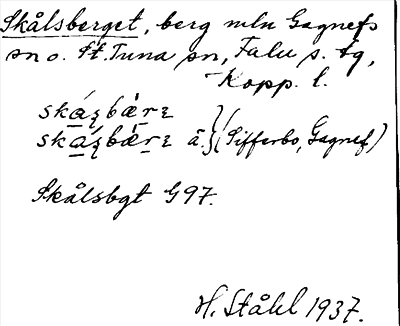 Skålsberget, berg mln Gagnefs
sn o. St. Tuna sn, Falu s. tg,
Kopp. l.
skáꞩbǽrꞩ
skáꞩbǽrꞩ ä. } (Sifferbo, Gagnef)
Skålsbgt G97.
H. Ståhl 1937.